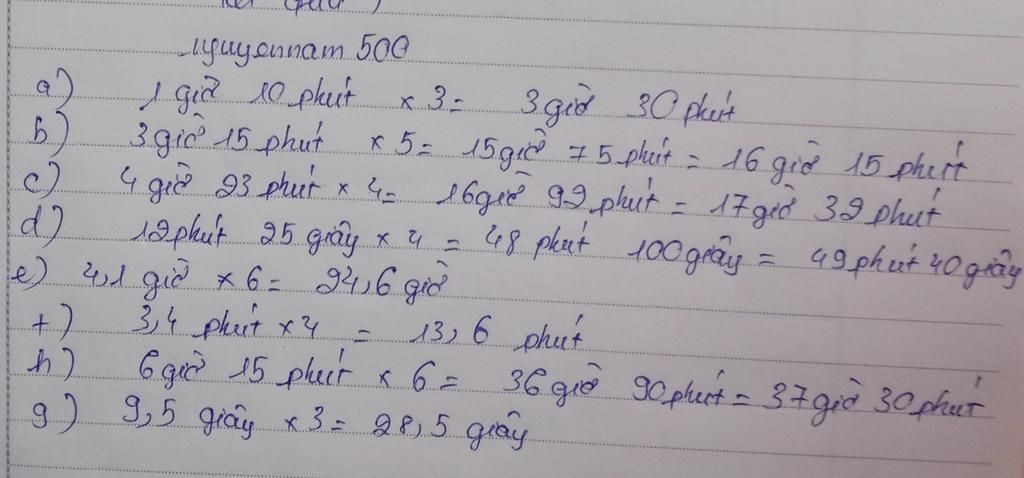 nguyennam 500
a) 1 giờ 10 phút x 3 = 3 giờ 30 phút
b) 3 giờ 15 phút x 5 = 15 giờ 75 phút = 16 giờ 15 phút
c) 4 giờ 23 phút x 4 = 16 giờ 92 phút = 17 giờ 32 phút
d) 12 phút 25 giây x 4 = 48 phút 100 giây = 49 phút 40 giây
e) 4,1 giờ x 6 = 24,6 giờ
f) 3,4 phút x 4 = 13,6 phút
h) 6 giờ 15 phút x 6 = 36 giờ 90 phút = 37 giờ 30 phút
g) 9,5 giây x 3 = 28,5 giây